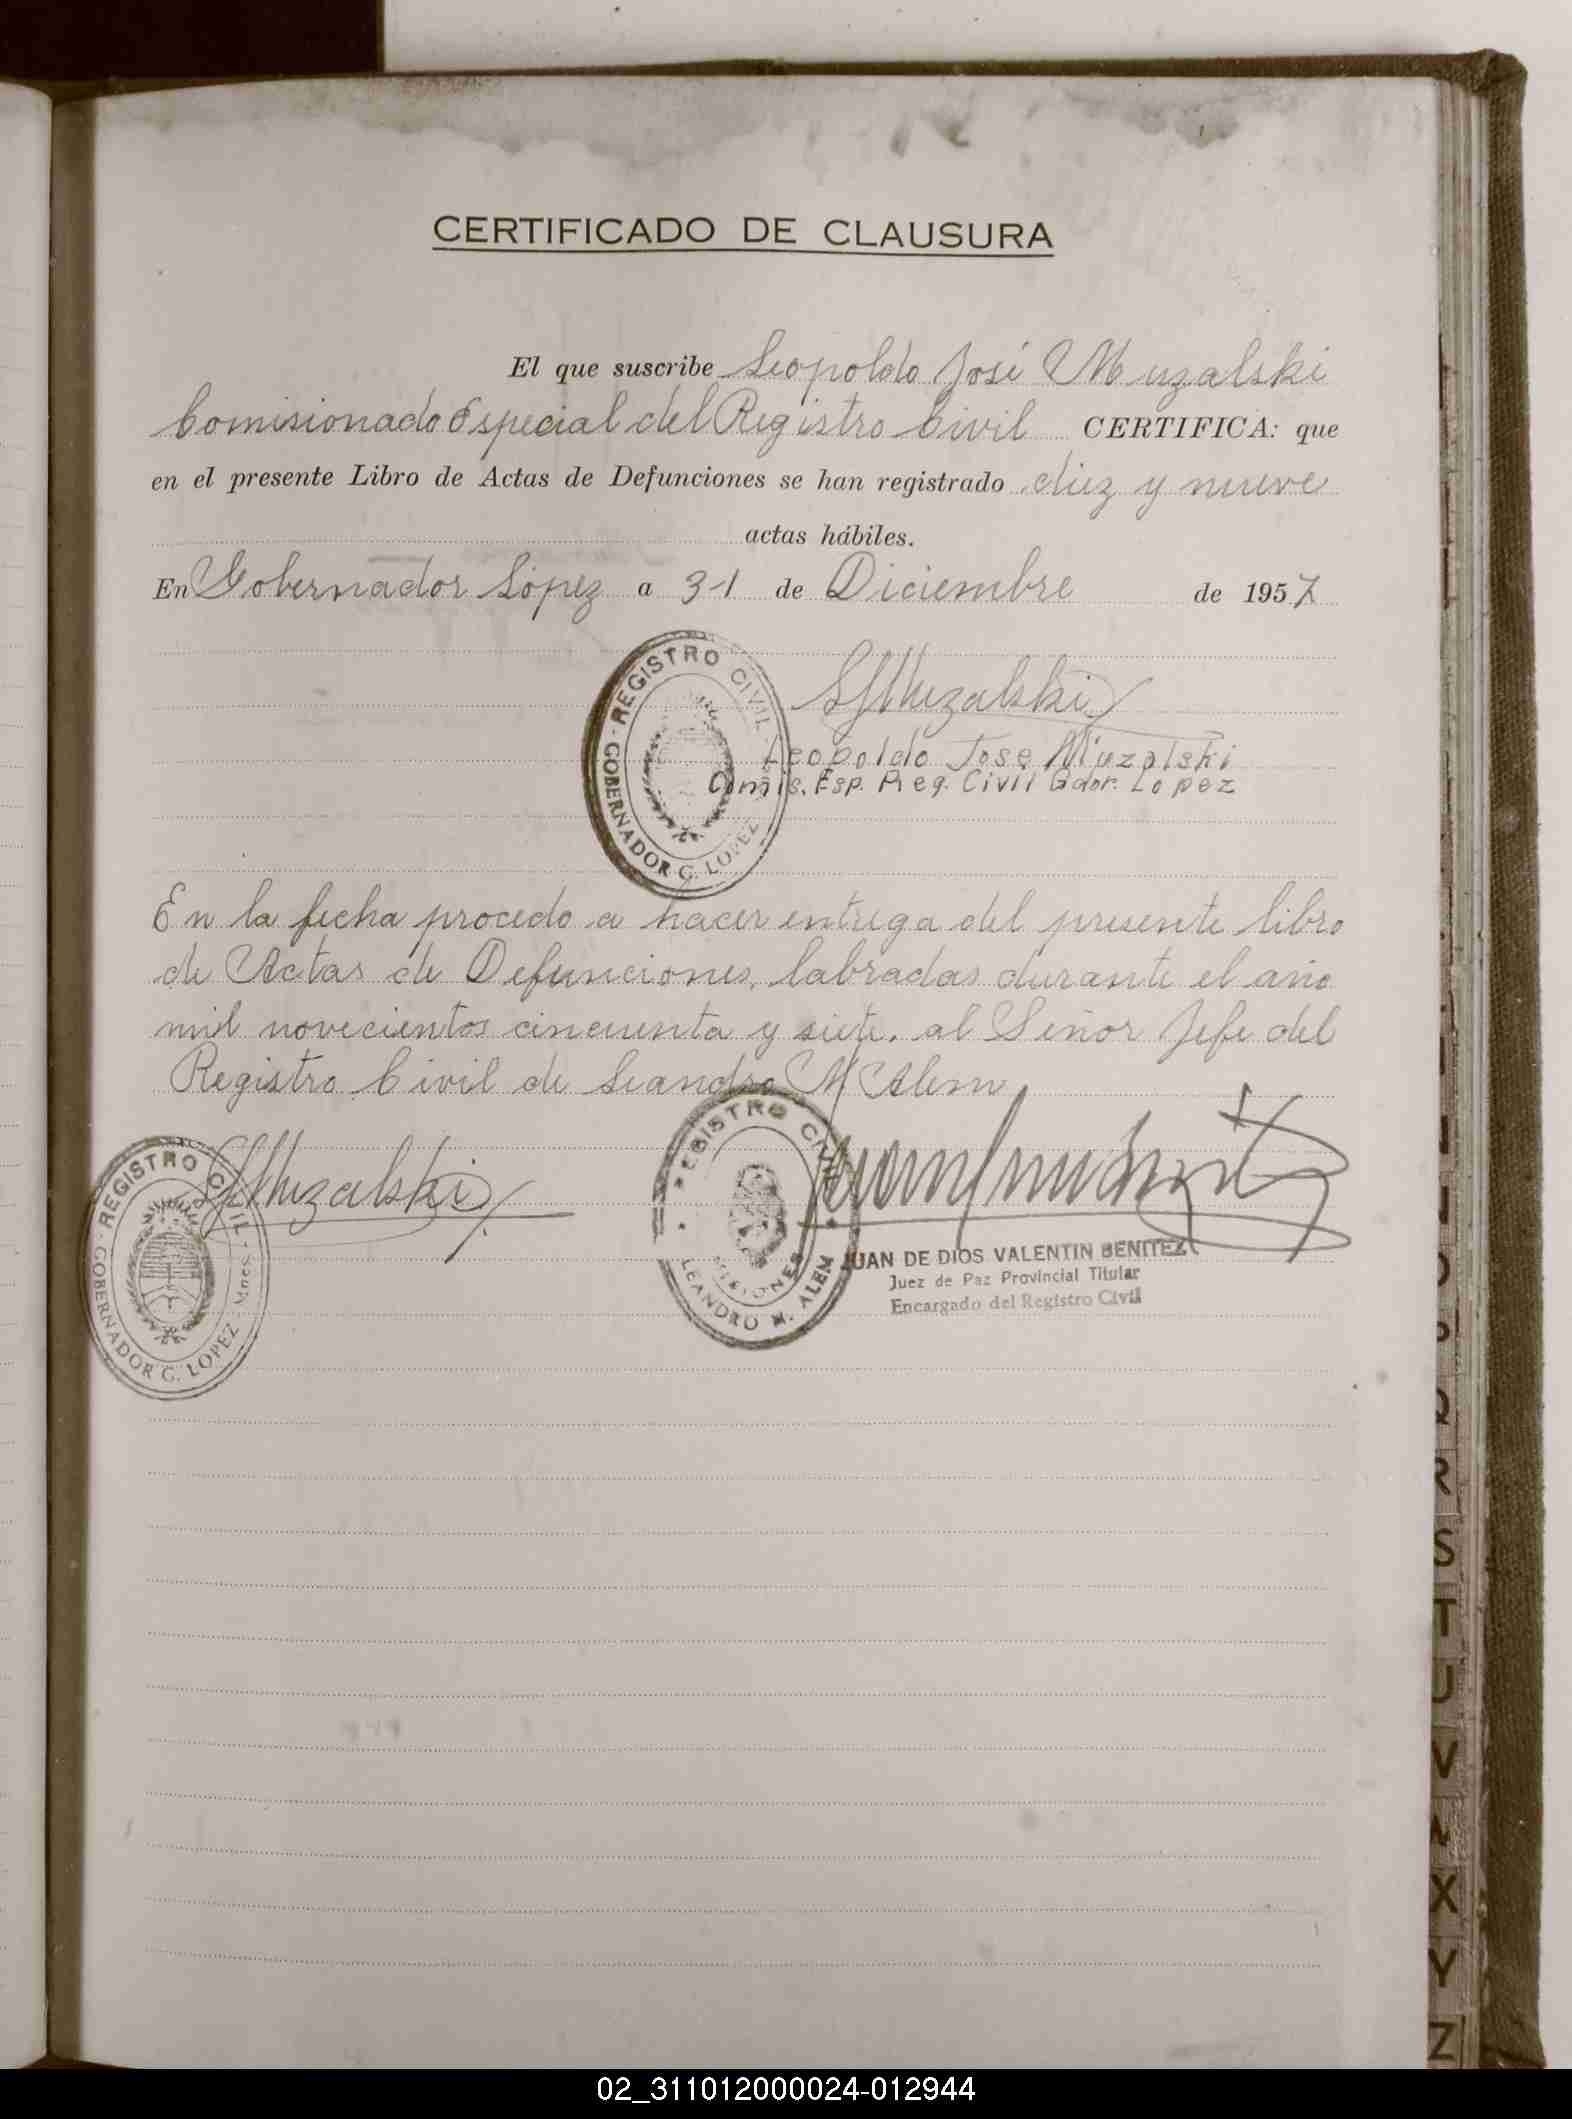 CERTIFICADO DE CLAUSURA
El que suscribe Leopoldo José Muzalski
Comisionado Especial del Registro Civil CERTIFICA: que
en el presente Libro de Actas de Defunciones se han registrado diez y nueve
actas hábiles.
En Gobernador López a 31 de Diciembre de 1957
LJMuzalski
REGISTRO CIVIL
GOBERNADOR C. LOPEZ
Leopoldo José Muzalski
Comis. Esp. Reg. Civil Gdor. Lopez
En la fecha procedo a hacer entrega del presente libro
de Actas de Defunciones, labradas durante el año
mil novecientos cincuenta y siete, al Señor Jefe del
Registro Civil de Leandro N Alem
LJMuzalski
REGISTRO CIVIL - Mnes. -
GOBERNADOR C. LOPEZ
REGISTRO CIVIL
MISIONES
LEANDRO N. ALEM
JUAN DE DIOS VALENTIN BENITEZ
Juez de Paz Provincial Titular
Encargado del Registro Civil
R
S
T
U
V
X
Y
Z
02_311012000024-012944